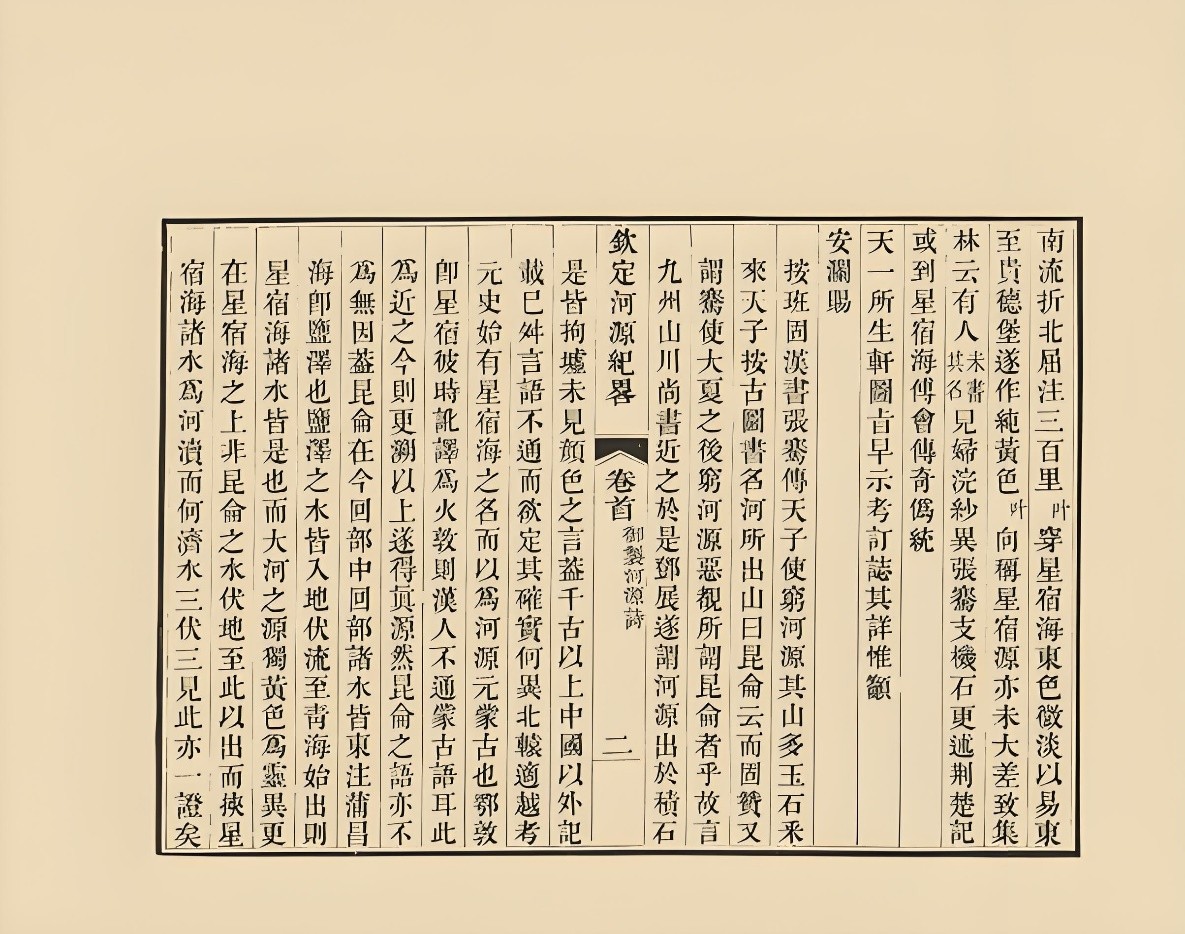 南流折北屈注三百里叶穿星宿海東色微淡以易東
至貴德堡遂作純黃色叶向稱星宿源亦未大差致集
林云有人未書其名見婦浣紗異張騫支機石更述荆楚記
或到星宿海傅會傳奇僞統
天一所生軒圖昔早示考訂誌其詳惟籲
安瀾賜
按班固漢書張騫傳天子使窮河源其山多玉石采
來天子按古圖書名河所出山曰昆侖云而固贊又
謂騫使大夏之後窮河源惡覩所謂昆侖者乎故言
九州山川尚書近之於是鄧展遂謂河源出於積石
欽定河源紀畧 卷首 御製河源詩 二
是皆拘墟未見顏色之言葢千古以上中國以外記
載已舛言語不通而欲定其確實何異北轅適越考
元史始有星宿海之名而以爲河源元蒙古也鄂敦
卽星宿彼時訛譯爲火敦則漢人不通蒙古語耳此
爲近之今則更溯以上遂得真源然昆侖之語亦不
爲無因葢昆侖在今回部中回部諸水皆東注蒲昌
海卽鹽澤也鹽澤之水皆入地伏流至青海始出則
星宿海諸水皆是也而大河之源獨黃色爲靈異更
在星宿海之上非昆侖之水伏地至此以出而挾星
宿海諸水爲河瀆而何濟水三伏三見此亦一證矣